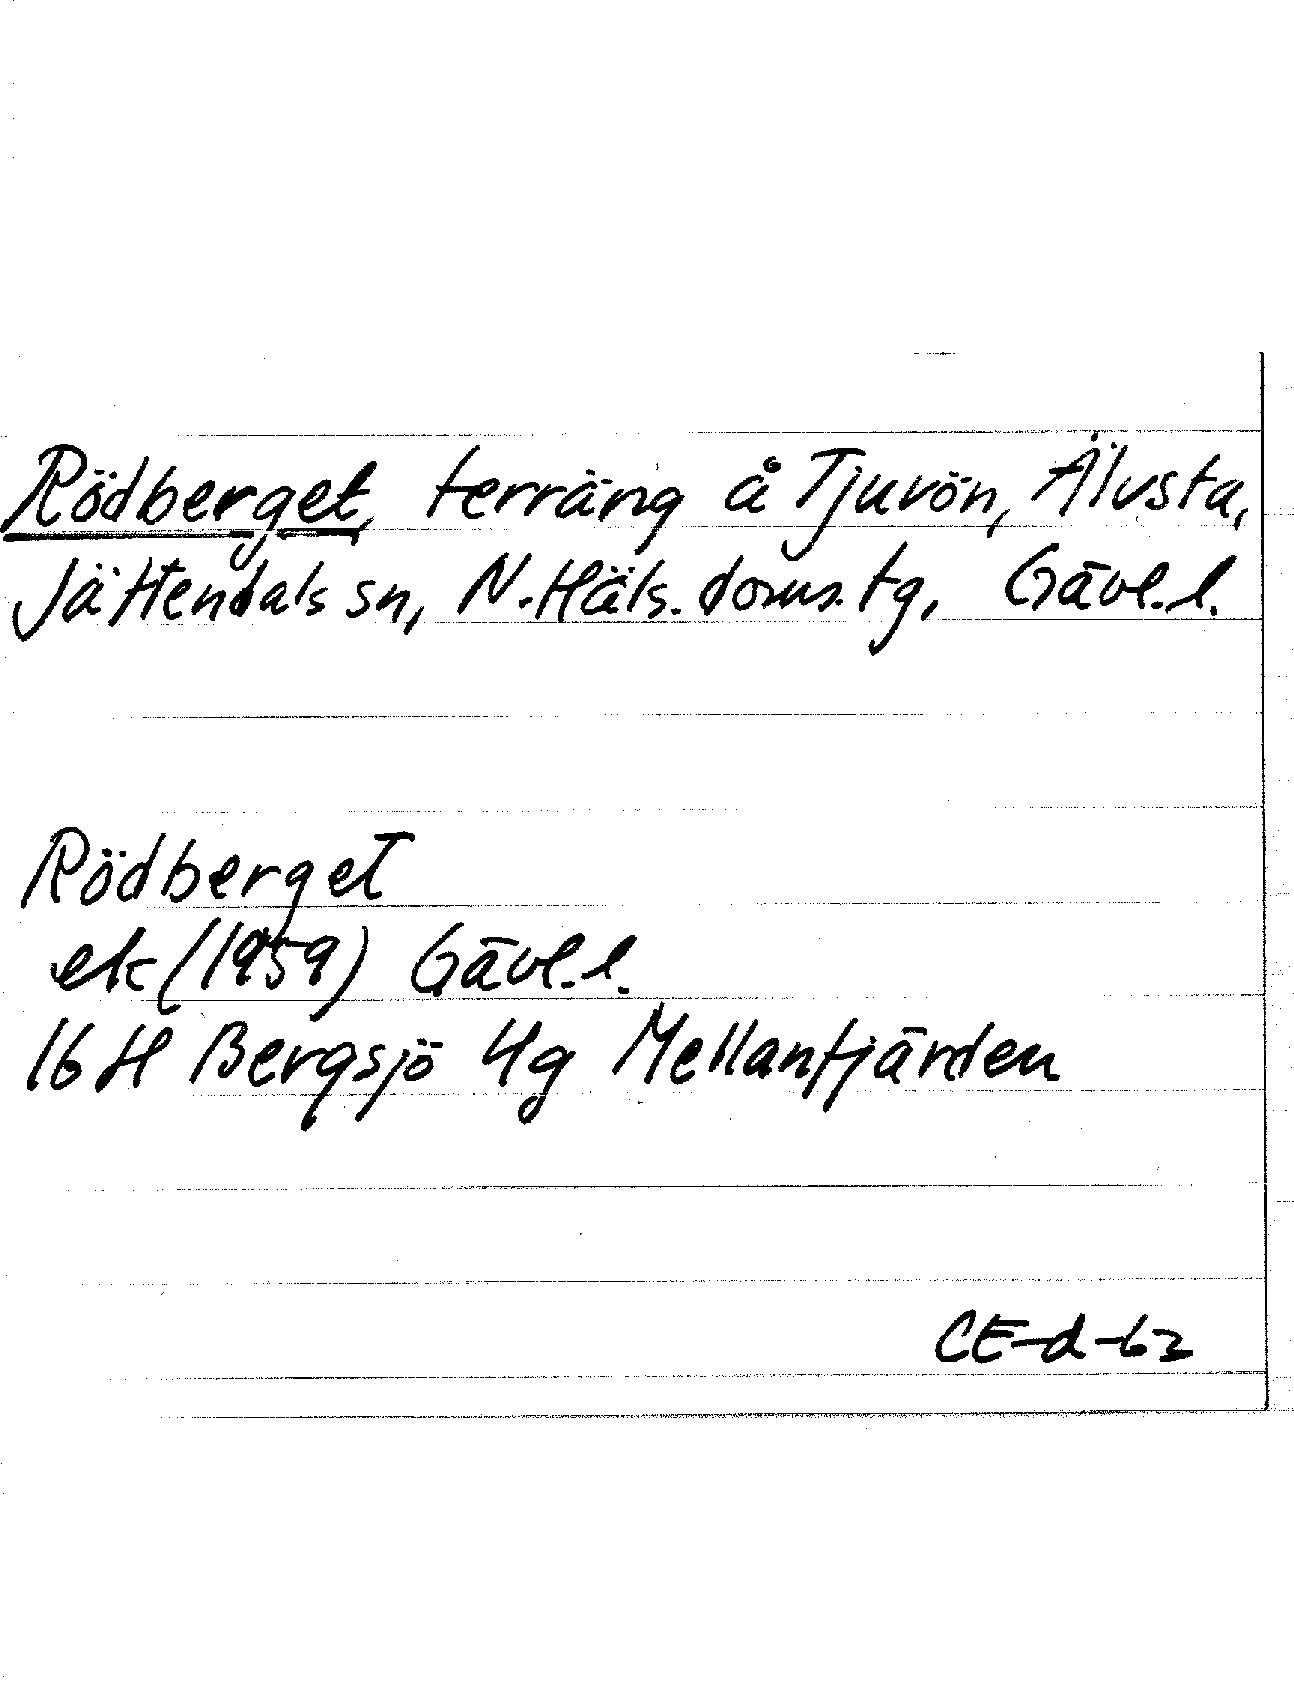 Rödberget, terräng å Tjuvön, Älvsta,
Jättendals sn, N. Häls. doms. tg, Gävl. l.
Rödberget
ek (1959) Gävl. l.
16 H Bergsjö 4g Mellanfjärden
CE-d-62